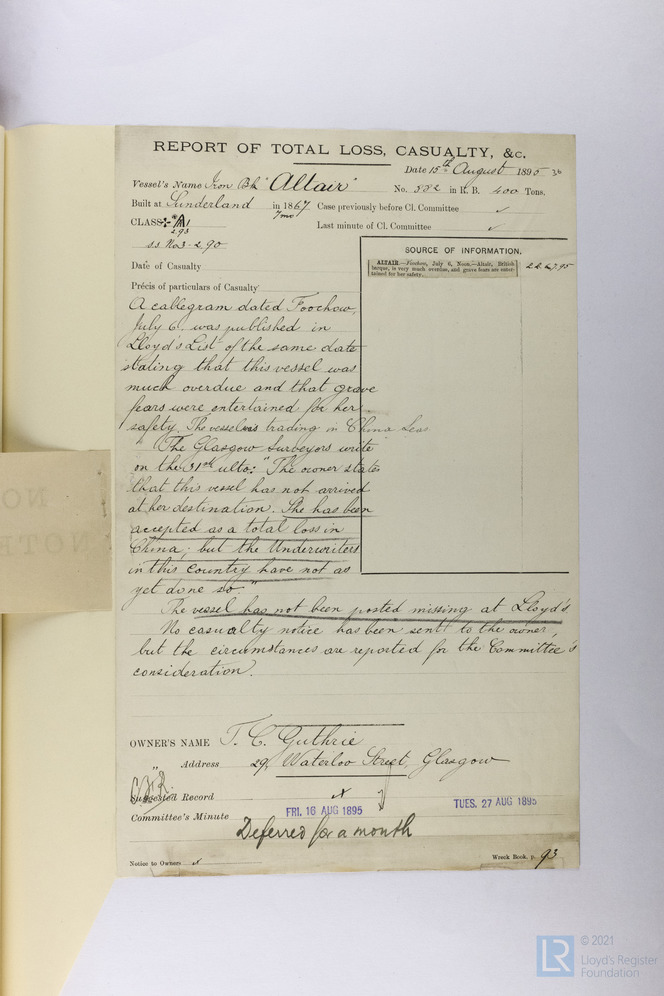 REPORT OF TOTAL LOSS, CASUALTY, &c.
Date 15th August 1895
Vessel's Name Iron Bk "Altair" No. 582 in R. B. 400 Tons.
Built at Sunderland in 1867 Case previously before Cl. Committee ✓
7mo
CLASS A1 Last minute of Cl. Committee ✓
2,93
s.s. No3-2,90
SOURCE OF INFORMATION.
ALTAIR.—Foochow, July 6, Noon.—Altair, British
barque, is very much overdue, and grave fears are enter-
tained for her safety.
Date of Casualty
Précis of particulars of Casualty
A cablegram dated Foochow,
July 6. was published in
Lloyd's List of the same date
stating that this vessel was
much overdue and that grave
fears were entertained for her
safety. The vessel was trading in China Seas
The Glasgow Surveyors write
on the 31st ulto: "The owner states
that this vessel has not arrived
at her destination. She has been
accepted as a total loss in
China; but the Underwriters
in this country have not as
yet done so."
The vessel has not been posted missing at Lloyd's.
No casualty notice has been sent to the owner,
but the circumstances are reported for the Committee's
consideration.
OWNER'S NAME T. C. Guthrie
" Address 29, Waterloo Street, Glasgow
Suggested Record
Committee's Minute FRI. 16 AUG 1895 TUES. 27 AUG 1895
Deferred for a month
Notice to Owners
Wreck Book, p. 93
NO
NOTE
LR
© 2021
Lloyd's Register
Foundation